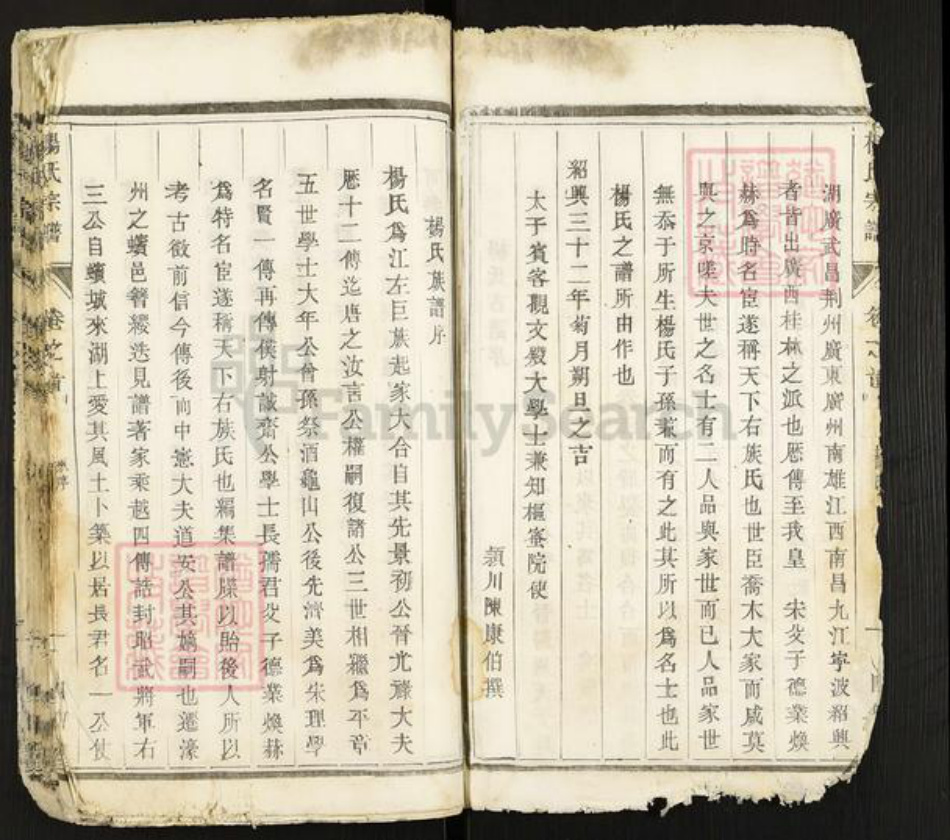 湖廣武昌荆州廣東廣州南雄江西南昌九江寧波紹興
者皆出廣西桂林之派也歷傳至我皇 宋父子德業煥
赫爲時名宦遂稱天下右族氏也世臣喬木大家而戚莫
與之京嗟夫世之名士有二人品與家世而已人品家世
無忝于所生楊氏子孫兼而有之此其所以爲名士也此
楊氏之譜所由作也
紹興三十二年菊月朔旦之吉
太子賓客觀文殿大學士兼知樞密院使
潁川陳康伯撰
楊氏族譜序
楊氏爲江左巨族起家大合自其先景初公晉光祿大夫
歷十二傳迄唐之汝言公權嗣復諸公三世相繼爲平章
五世學士大年公曾孫祭酒龜山公後先濟美爲宋理學
名賢一傳再傳僕射誠齋公學士長孺君父子德業煥赫
爲特名宦遂稱天下右族氏也編集譜牒以貽後人所以
考古徵前信今傳後而中憲大夫道安公其嫡嗣也遷濠
州之蠙邑簪纓迭見譜著家乘越四傳誥封昭武將軍右
三公自蠙城來湖上愛其風土卜築以居長君名一丕仗
楊氏宗譜
卷之首
FamilySearch